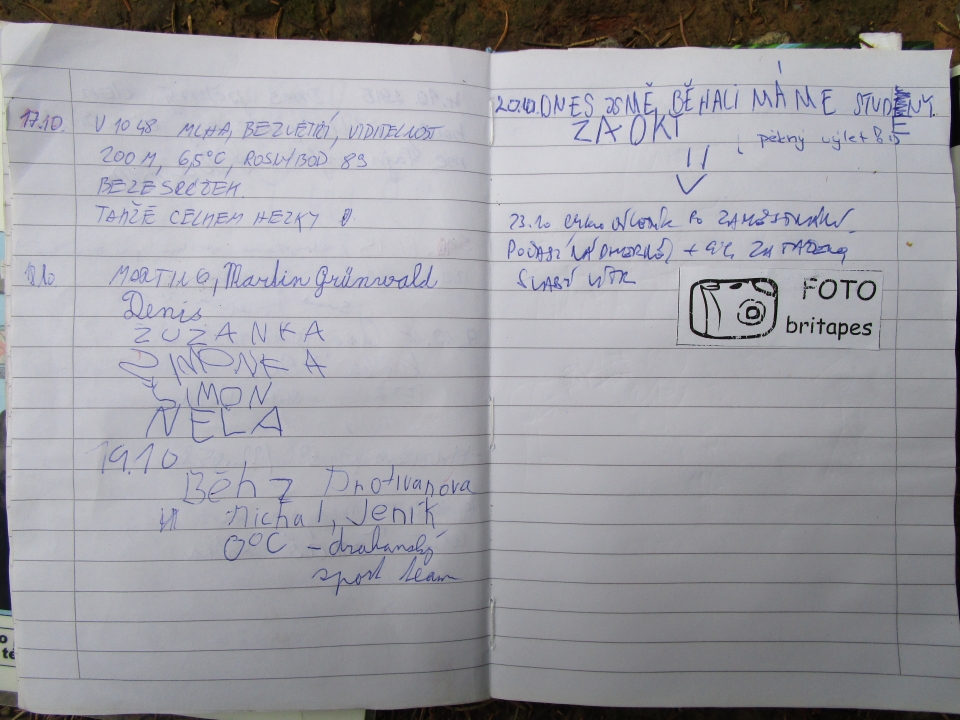 17.10. V 1048 MLHA, BEZVĚTŘÍ, VIDITELNOST
200 M, 6,5°C, ROSNÝ BOD 89
BEZE SRÁŽEK.
TAKŽE CELKEM HEZKY
18.10. Martin Grünwald
Denis
ZUZANKA
ŠIMON
NELA
19.10
Běh z Protivanova
Michal, Jeník
0°C - drahanský
sport team
20.10. DNES JSMĚ BĚHALI MÁME STUDENÝ.
ZAOKÍ
pěkný výlet
23.10 PO ZAMĚSTNÁNÍ.
POČASÍ NÁDHERNÉ, + 9°C
SLABÝ VÍTR
FOTO
britapes